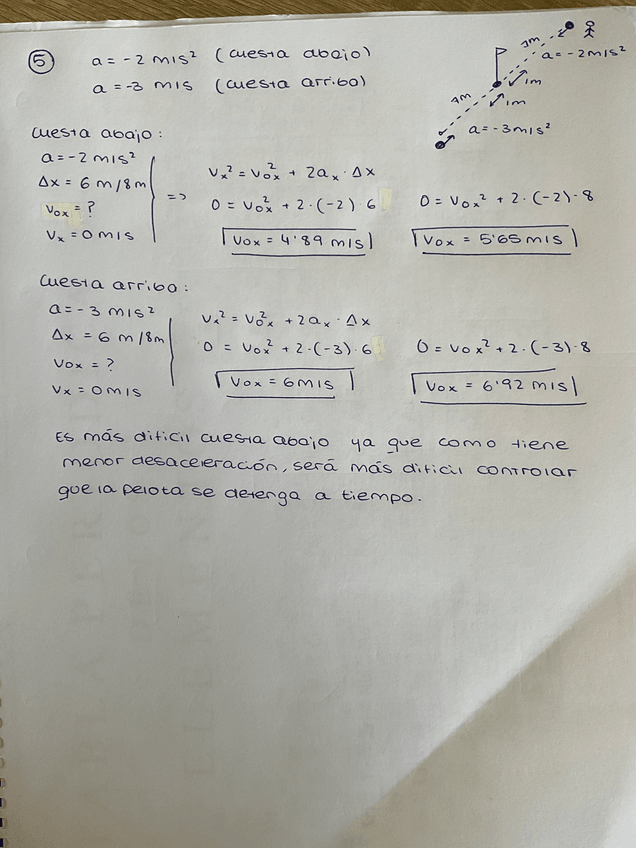 5 a = -2 m/s² (cuesta abajo)
a = -3 m/s (cuesta arriba)
7m
a = -2m/s²
1m
1m
7m
a = -3m/s²
cuesta abajo:
a = -2 m/s²
Δx = 6 m/8m
v₀ₓ = ?
vₓ = 0 m/s
=>
vₓ² = v₀ₓ² + 2aₓ · Δx
0 = v₀ₓ² + 2·(-2)·6
v₀ₓ = 4'89 m/s
0 = v₀ₓ² + 2·(-2)·8
v₀ₓ = 5'65 m/s
cuesta arriba:
a = -3 m/s²
Δx = 6 m/8m
v₀ₓ = ?
vₓ = 0 m/s
vₓ² = v₀ₓ² + 2aₓ · Δx
0 = v₀ₓ² + 2·(-3)·6
v₀ₓ = 6m/s
0 = v₀ₓ² + 2·(-3)·8
v₀ₓ = 6'92 m/s
Es más difícil cuesta abajo ya que como tiene
menor desaceleración, será más difícil controlar
que la pelota se detenga a tiempo.